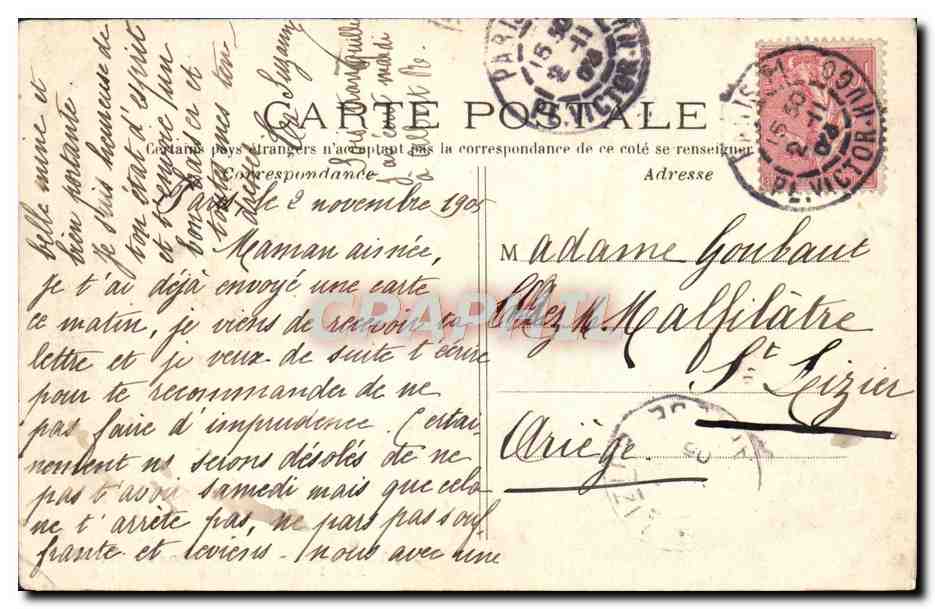 CARTE POSTALE
Certains pays étrangers n'acceptant pas la correspondance de ce coté se renseigner
Correspondance
Adresse
Paris, le 2 novembre 1905
Maman aimée,
je t'ai déjà envoyé une carte
ce matin, je viens de recevoir ta
lettre et je veux de suite t'écrire
pour te recommander de ne
pas faire d'imprudence. Certai-
nement ns serons désolés de ne
pas t'avoir samedi mais que cela
ne t'arrête pas, ne pars pas souf-
frante et reviens - nous avec une
belle mine et
bien portante.
je suis heureuse de
ton état d'esprit
et t'envoie un
bon baiser et
toutes mes ten-
dresses
Suzanne
Sois tranquille
j'ai écrit mardi
à
Madame Goubaut
Chez M. Malfilâtre
St Lizier
Ariège.
PARIS
15 30
2 -11
05
PL. VICTOR-HUGO
PARIS
15 30
2 -11
05
PL. VICTOR-HUGO
05
CPARAMA